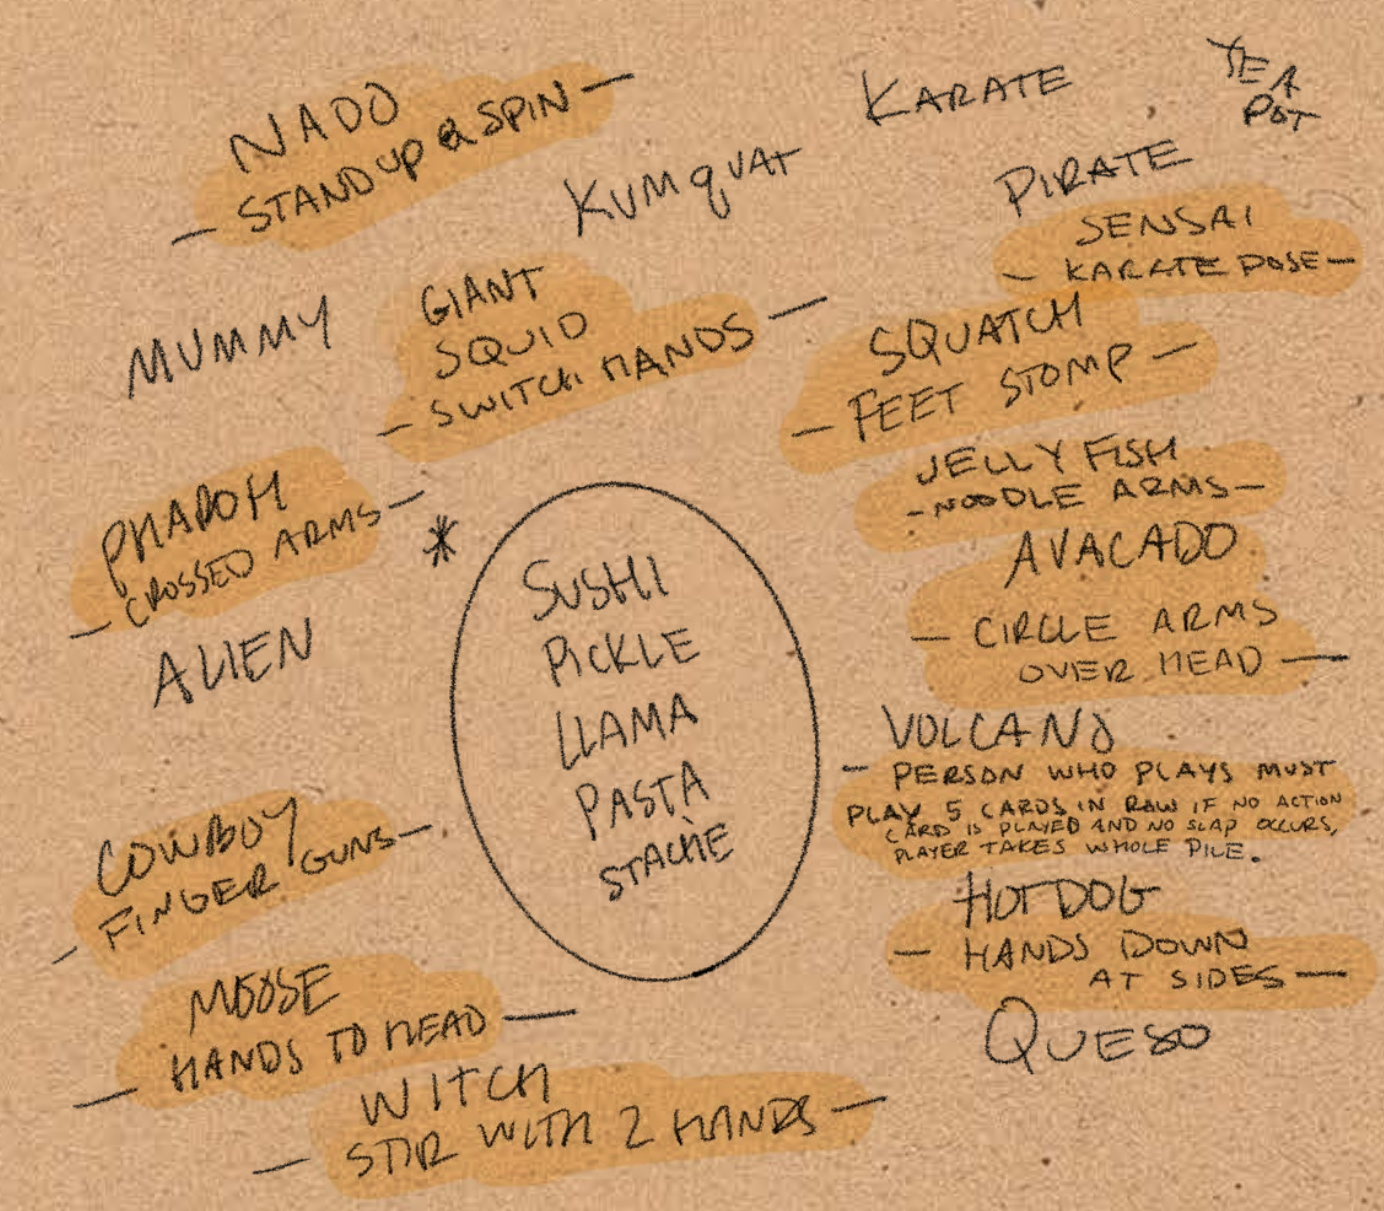 NADO
— STAND UP & SPIN —
KUMQUAT
KARATE
TEA
POT
PIRATE
SENSAI
— KARATE POSE —
MUMMY
GIANT
SQUID
— SWITCH HANDS —
SQUATCH
— FEET STOMP —
JELLY FISH
- NOODLE ARMS —
PHAROH
— CROSSED ARMS —
ALIEN
*
SUSHI
PICKLE
LLAMA
PASTA
STACHE
AVACADO
— CIRCLE ARMS
OVER HEAD —
VOLCANO
— PERSON WHO PLAYS MUST
PLAY 5 CARDS IN ROW IF NO ACTION
CARD IS PLAYED AND NO SLAP OCCURS,
PLAYER TAKES WHOLE PILE.
COWBOY
— FINGER GUNS —
HOTDOG
— HANDS DOWN
AT SIDES —
MOOSE
— HANDS TO HEAD —
QUESO
WITCH
— STIR WITH 2 HANDS —